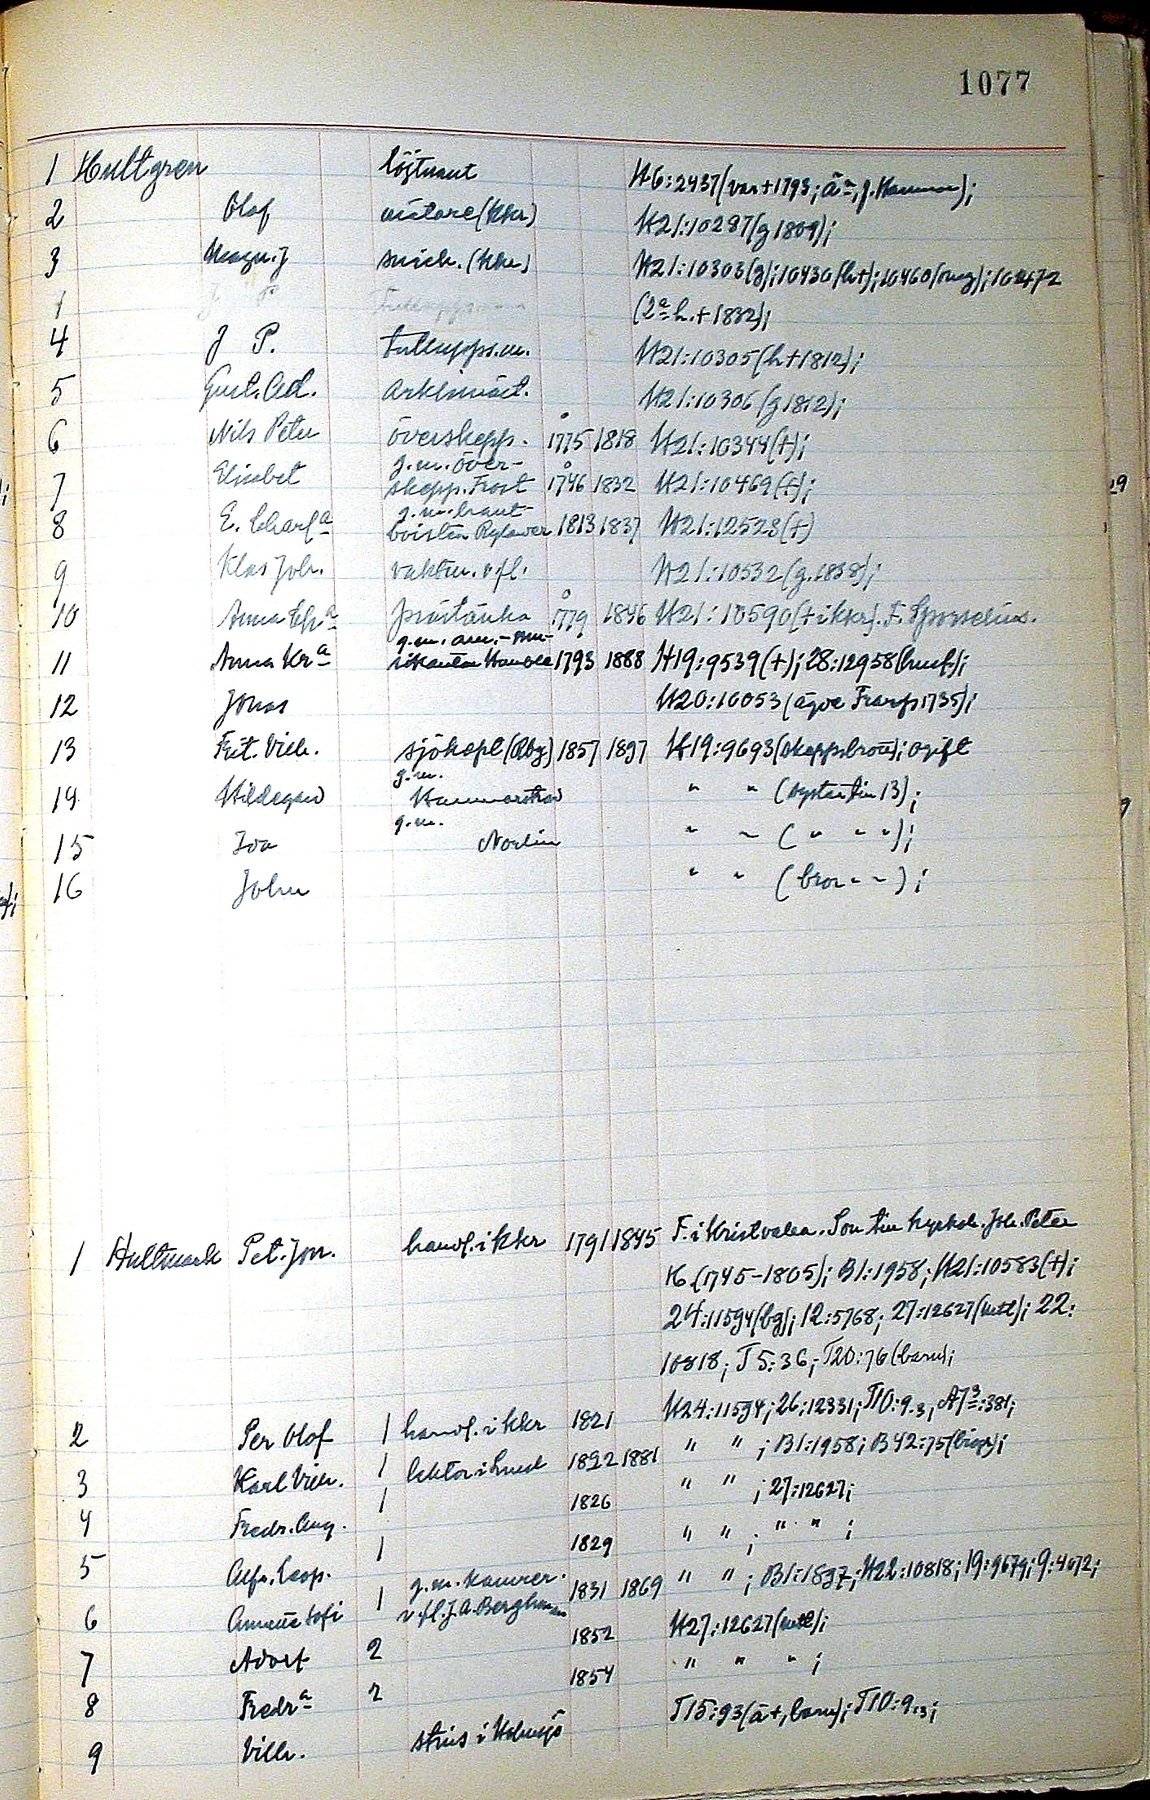 1077
1 Hultgren löjtnant K6:2437 (var +1793; äa, g. Hammar);
2 Olof mästare (kkr) K21:10297 (g 1809);
3 Magn. J snick. (kkr) K21:10303 (g); 10430 (h+); 10460 (omg); 10472
(2a h. + 1832);
4 J P. tullupps.m. K21:10305 (h+1812);
5 Gust. Ad. arklimäst. K21:10306 (g 1812);
6 Nils Peter överskepp. 1775 1818 K21:10344 (+);
7 Elisabet g.m. över-
skepp. Frost 1746 1832 K21:10469 (+);
8 E. Charl a g.m. haut-
boisten Rylander 1813 1837 K21:12528 (+)
9 Klas Joh. vaktm. v fl. K21:10532 (g. 1838);
10 Anna Chr a prästänka 1779 1846 K21:10590 (+ i kkr). F. Sporselius.
11 Anna Kr a g.m. arm.-mu-
sikanten 1793 1888 K19:9539 (+); 28:12958 (husf);
12 Jonas K20:10053 (ägde Frarp 1735);
13 Frit. Vilh. sjökapt (Rby) 1857 1897 K19:9693 (skeppsbrott); ogift
14 Hildegard g.m.
Hammarstrand " " (syster till 13);
15 Ida g.m.
Norlin " " ( " " " );
16 John " " (bror " " );
1 Hultmark Pet. Jon. handl. i kkr 1791 1845 F. i Kristvalla. Son till kyrkoh. Joh. Peter
H. (1745-1805); B1:1958; K21:10583 (+);
24:11594 (bg); 12:5768; 27:12627 (mtl); 22:
10818; T5:36; T20:76 (barn);
2 Per Olof 1 handl. i kkr 1821 K24:11594; 26:12331; T10:9.3, A73:381;
3 Karl Vilh. 1 lektor i Lund 1822 1881 " " ; B1:1958; B42:75 (biogr);
4 Fredr. Aug. 1 1826 " " ; 27:12627;
5 Alfr. Leop. 1 1829 " " ; " " ;
6 Annette Sofi 1 g.m. kamrer.
v fl. J. A. Bergman 1831 1869 " " ; B1:1837; K22:10818; 19:9679; 9:4072;
7 Adolf 2 1852 K27:12627 (mtl);
8 Fredr a 2 1854 " " " ;
9 Vilh. T15:93 (ä+, barn); T10:9.3;